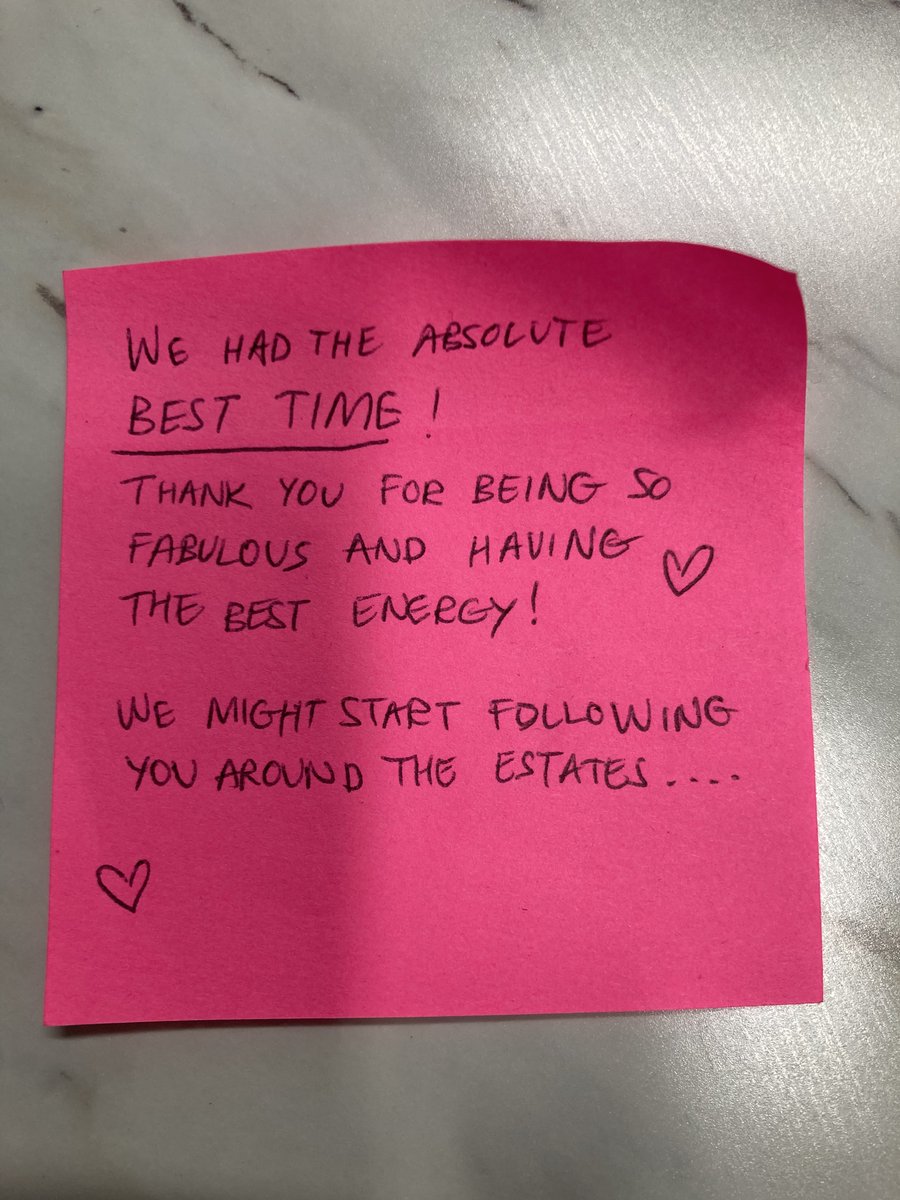 WE HAD THE ABSOLUTE
BEST TIME!
THANK YOU FOR BEING SO
FABULOUS AND HAVING
THE BEST ENERGY!
WE MIGHT START FOLLOWING
YOU AROUND THE ESTATES....